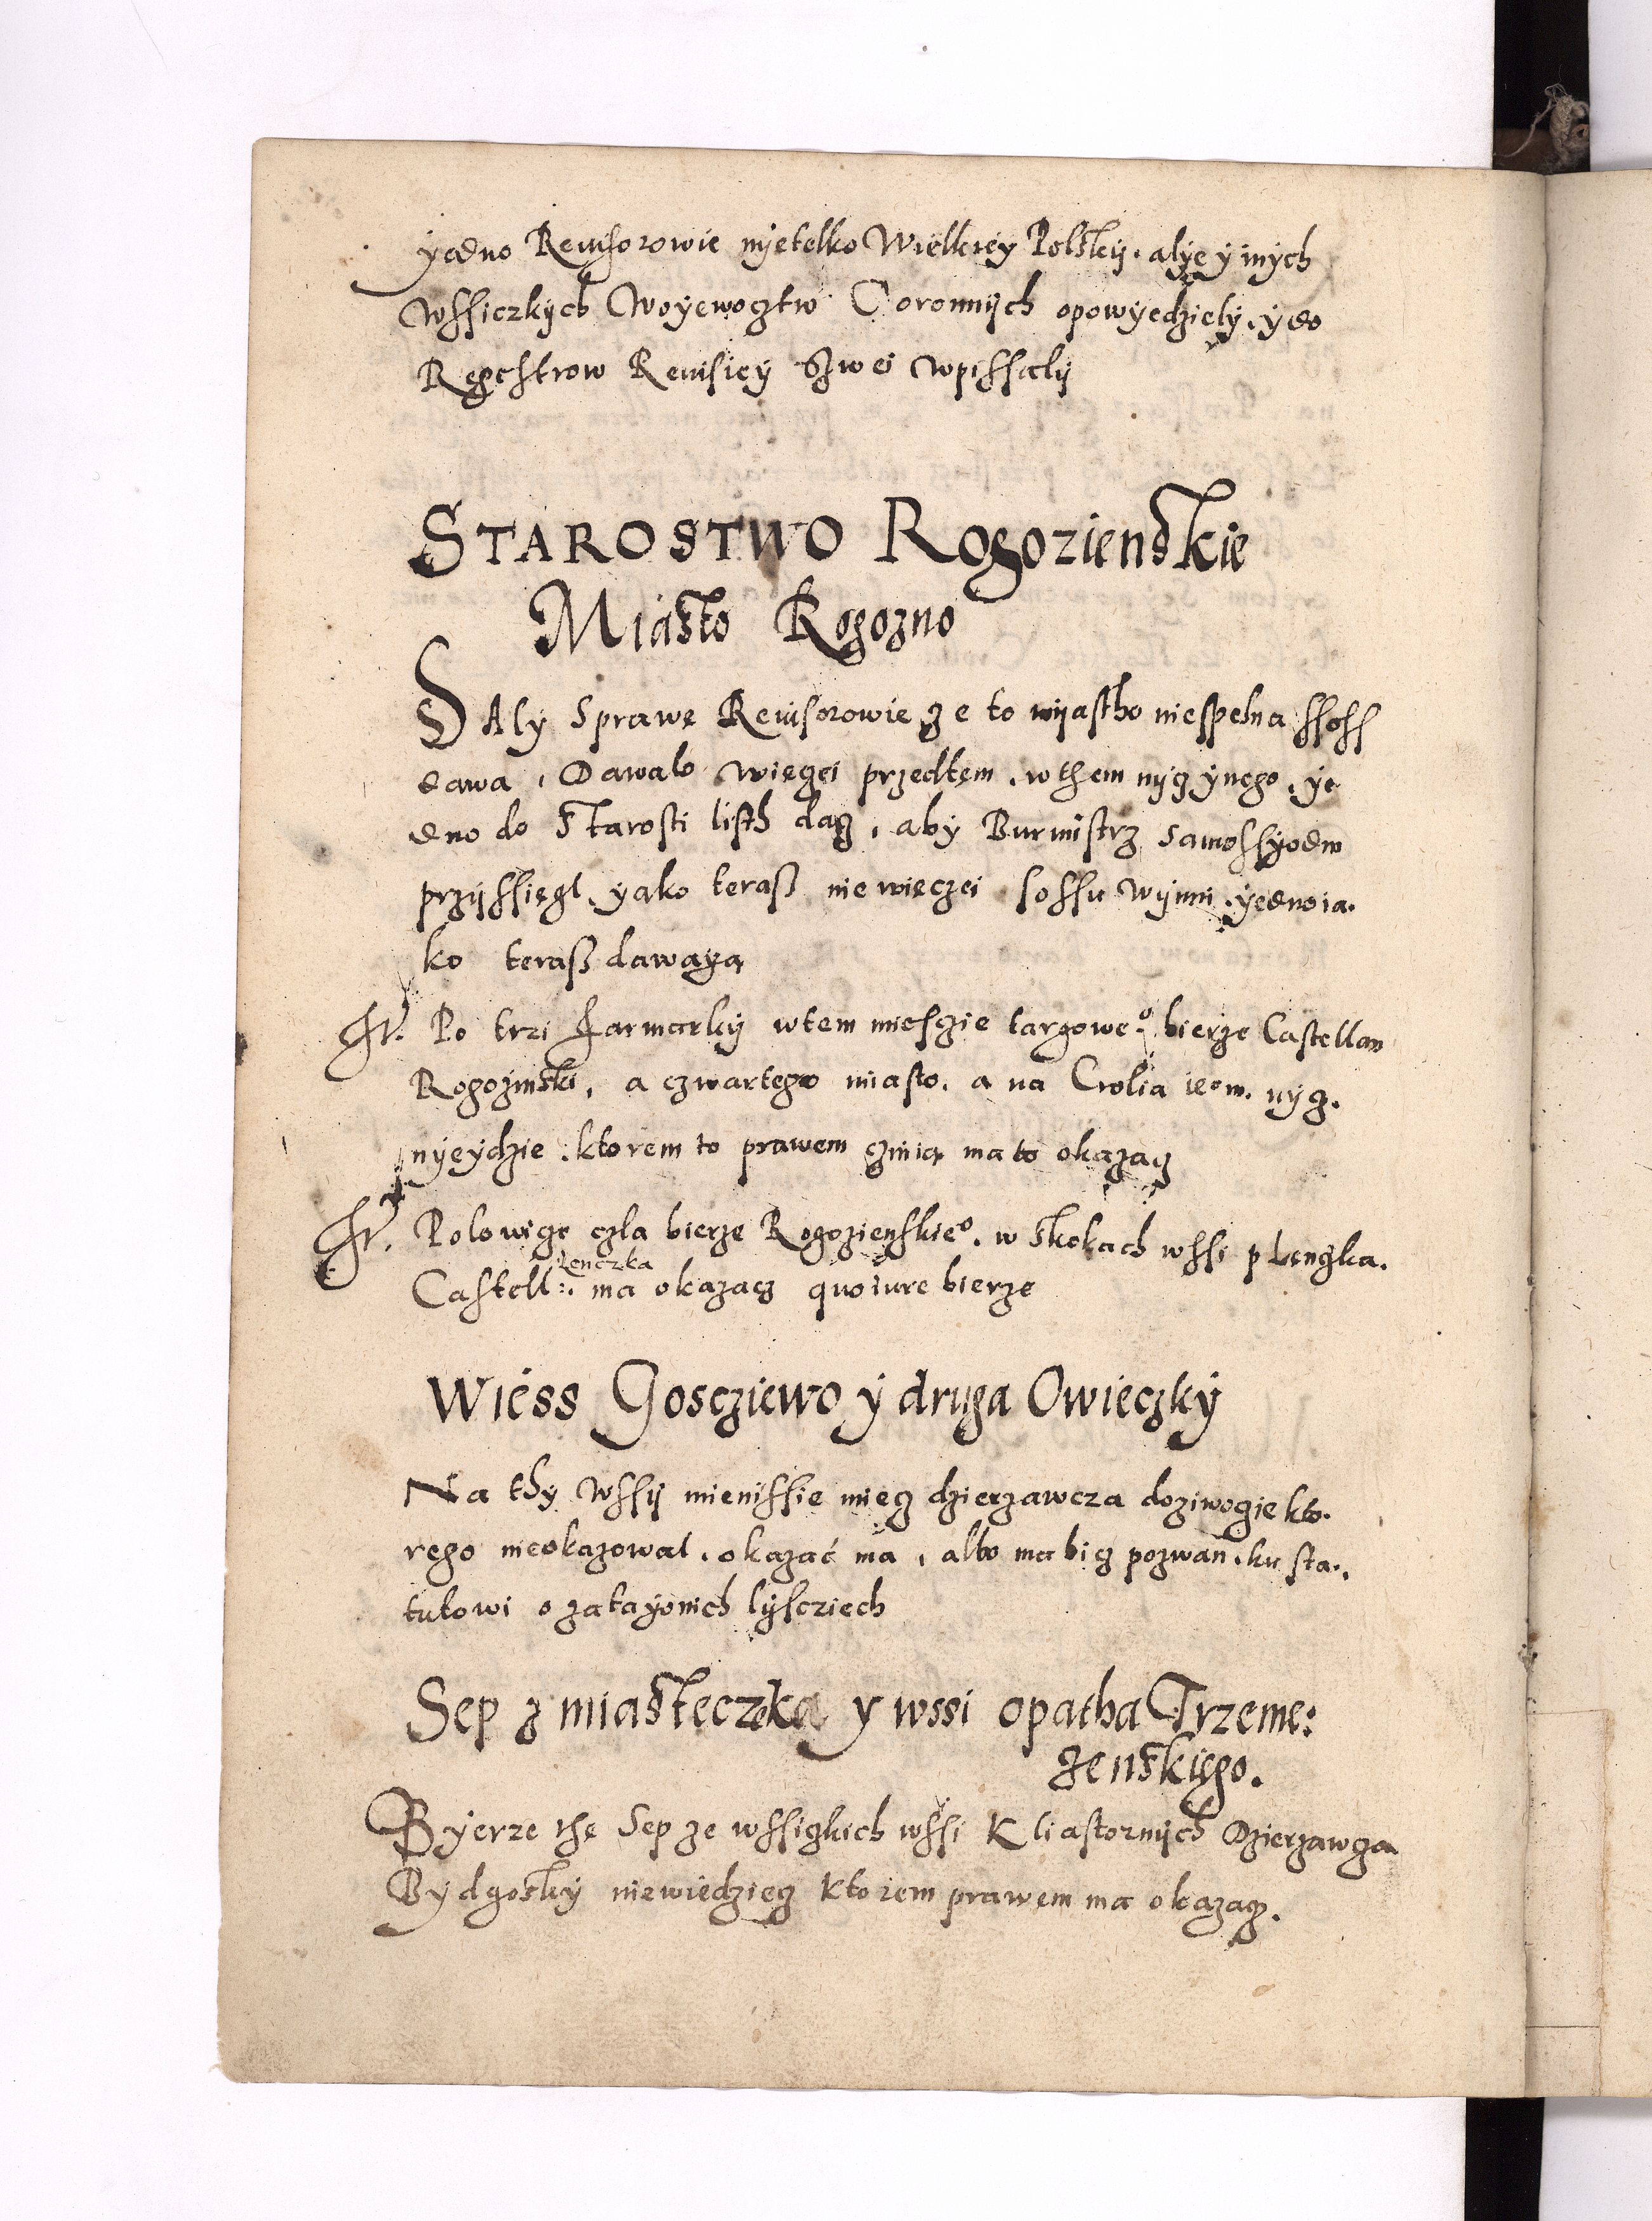 yedno Rewisorowie nyetelko Wielkiey Polskiy. alye y inych
wssiczkych Woyewocztw Coronnych opowyedziely, y do
Regestrow Rewisiey Szwei wpissaly
STAROSTWO Rogozienskie
Miasto Rogozno
DAly Sprawę Rewisorowie ze to myastho niespelna ssoss
dawa, Dawalo więcei przedtem, w them nyz ynego, ye
dno do Starosti listh dacz, aby Burmistrz samossyodm
przyssięgl, yako terasz nie więczei sossu wynni, yedno ia.
ko terasz dawaya
It. Po trzi Jarmarky wtem miesczie targoweº bierze Castellan
Rogozinski, a czwartego miasto, a na Crolia ieom. nyz.
nyeydzie. ktorem to prawem czinia ma to okazacz
It. Polowicze czla bierze Rogozienskieº. w Skokach wssi p Lenzka.
Lenczka
Castell:. ma okazacz quo iure bierze
Wiess Goscziewo y druga Owieczky
Na thy Wssy mienissie miecz dzierzawcza doziwoczie kto.
rego nieokazowal, okazać ma, albo ma bicz pozwan, ku sta.,
tutowi o zatayonich lyscziech
Sep z miasteczka y wssi opatha Trzeme:
zenskiego.
Byerze the Sep ze wssizkich wssi Kliastornych Dzierzawcza
Bydgosky niewiedziecz ktorem prawem ma okazacz.